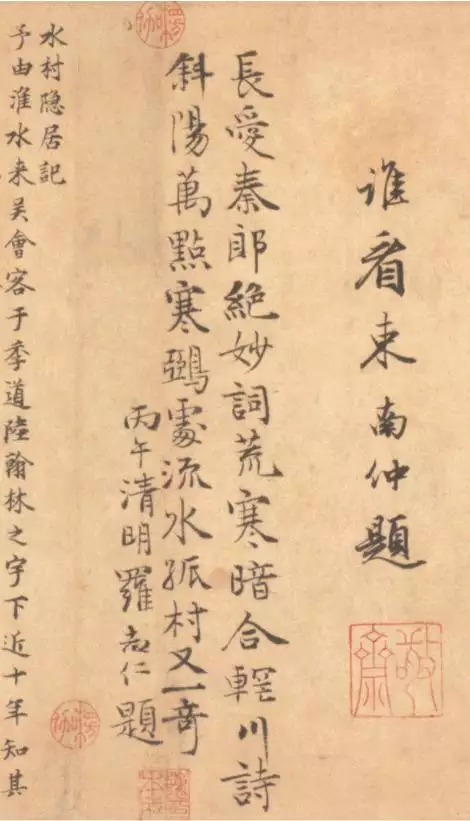 誰看束南仲題
長愛秦郎絕妙詞荒寒暗合輞川詩
斜陽萬點寒鵶處流水孤村又一奇
丙午清明羅志仁題
水村隱居記
予由淮水来吳會客于季道陸翰林之宇下近十年知其